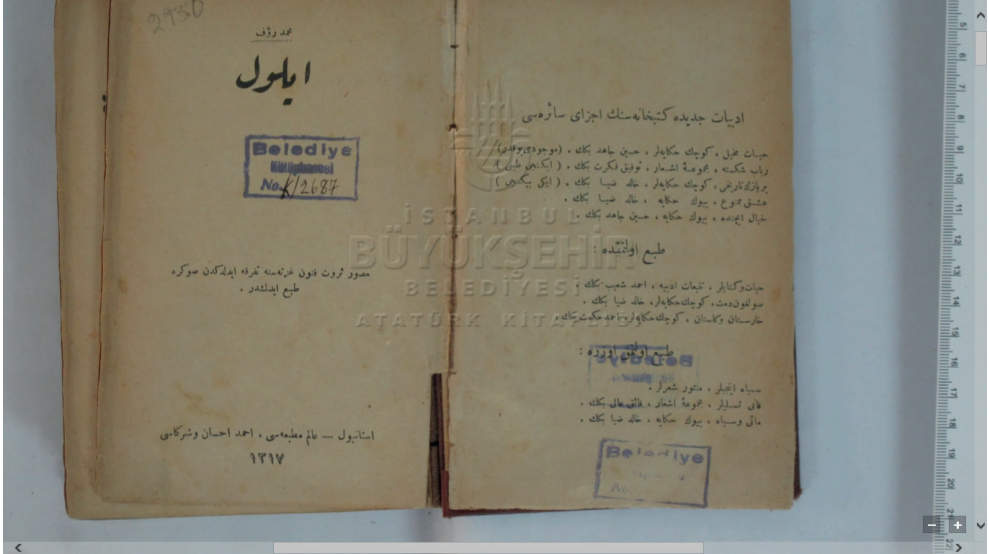 2930
محمد رؤف
ايلول
Belediye
Kütüphanesi
No. K/2687
مصور ثروت فنون غزته‌سنه تفرقه ايدلدكدن صوكره
طبع ايدلشدر .
استانبول — عالم مطبعه‌سى ، احمد احسان وشركاسى
١٣١٧
ادبيات جديده كتبخانه‌سنك اجزاى سائره‌سى
حيات مخيل ، كوچك حكايه‌لر ، حسين جاهد بكك . (موجودى يوقدر)
رباب شكسته ، مجموعهٔ اشعار ، توفيق فكرت بكك . ( ايكنجى طبعى )
بر يازك تاريخى ، كوچك حكايه‌لر ، خالد ضيا بكك . ( ايكى بيكنجى )
عشق ممنوع ، بيوك حكايه ، خالد ضيا بكك .
خيال ايچنده ، بيوك حكايه ، حسين جاهد بكك .
طبع اولنمقده :
حيات وكتابلر ، تتبعات ادبيه ، احمد شعيب بكك .
صولغون دمت ، كوچك حكايه‌لر ، خالد ضيا بكك .
خارستان وكلستان ، كوچك حكايه‌لر ، احمد حكمت بكك .
طبع اولنمق اوزره :
سياه اينجيلر ، منثور شعرلر .
فانى تسليلر ، مجموعهٔ اشعار ، فائق عالى بكك .
مائى وسياه ، بيوك حكايه ، خالد ضيا بكك .
Belediye
İSTANBUL
BÜYÜKŞEHİR
BELEDİYESİ
ATATÜRK KİTAPLIĞI